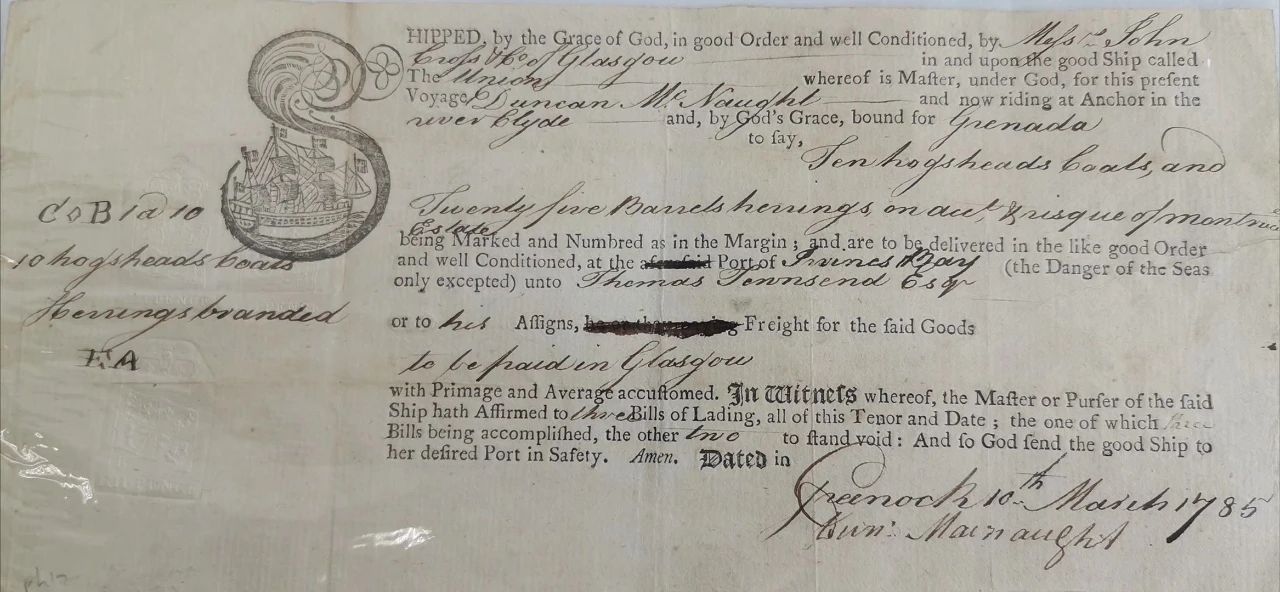 SHIPPED, by the Grace of God, in good Order and well Conditioned, by Messrs John
Cross & Co of Glasgow in and upon the good Ship called
The Union whereof is Maſter, under God, for this preſent
Voyage Duncan McNaught and now riding at Anchor in the
river Clyde and, by God's Grace, bound for Grenada
to ſay,
Ten hogsheads Coals, and
C◇B 1 a 10
Twenty five Barrels herrings, on acct. & risque of
Estate
being Marked and Numbred as in the Margin; and are to be delivered in the like good Order
10 hogsheads Coals
and well Conditioned, at the aforeſaid Port of Irvines Bay (the Danger of the Seas
only excepted) unto Thomas Townsend Esqr
Herrings branded
or to his Aſſigns, Freight for the ſaid Goods
EA
to be paid in Glasgow
with Primage and Average accuſtomed. In Witneſs whereof, the Maſter or Purſer of the ſaid
Ship hath Affirmed to three Bills of Lading, all of this Tenor and Date; the one of which three
Bills being accompliſhed, the other two to ſtand void: And ſo God ſend the good Ship to
her deſired Port in Safety. Amen. Dated in
Greenock 10th March 1785
Dunn: Macnaught